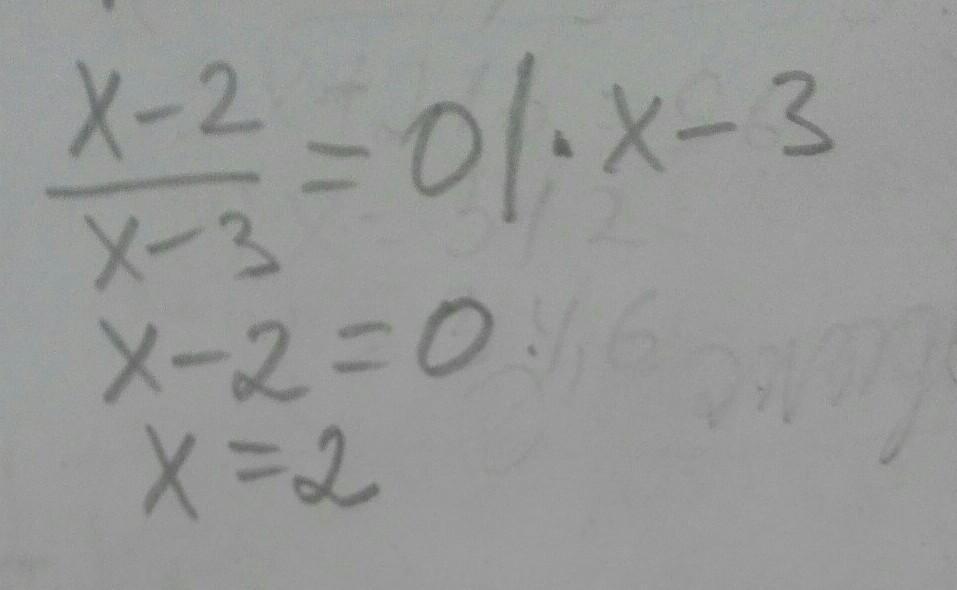 x-2/x-3 = 0 | · x-3
x-2=0
x=2